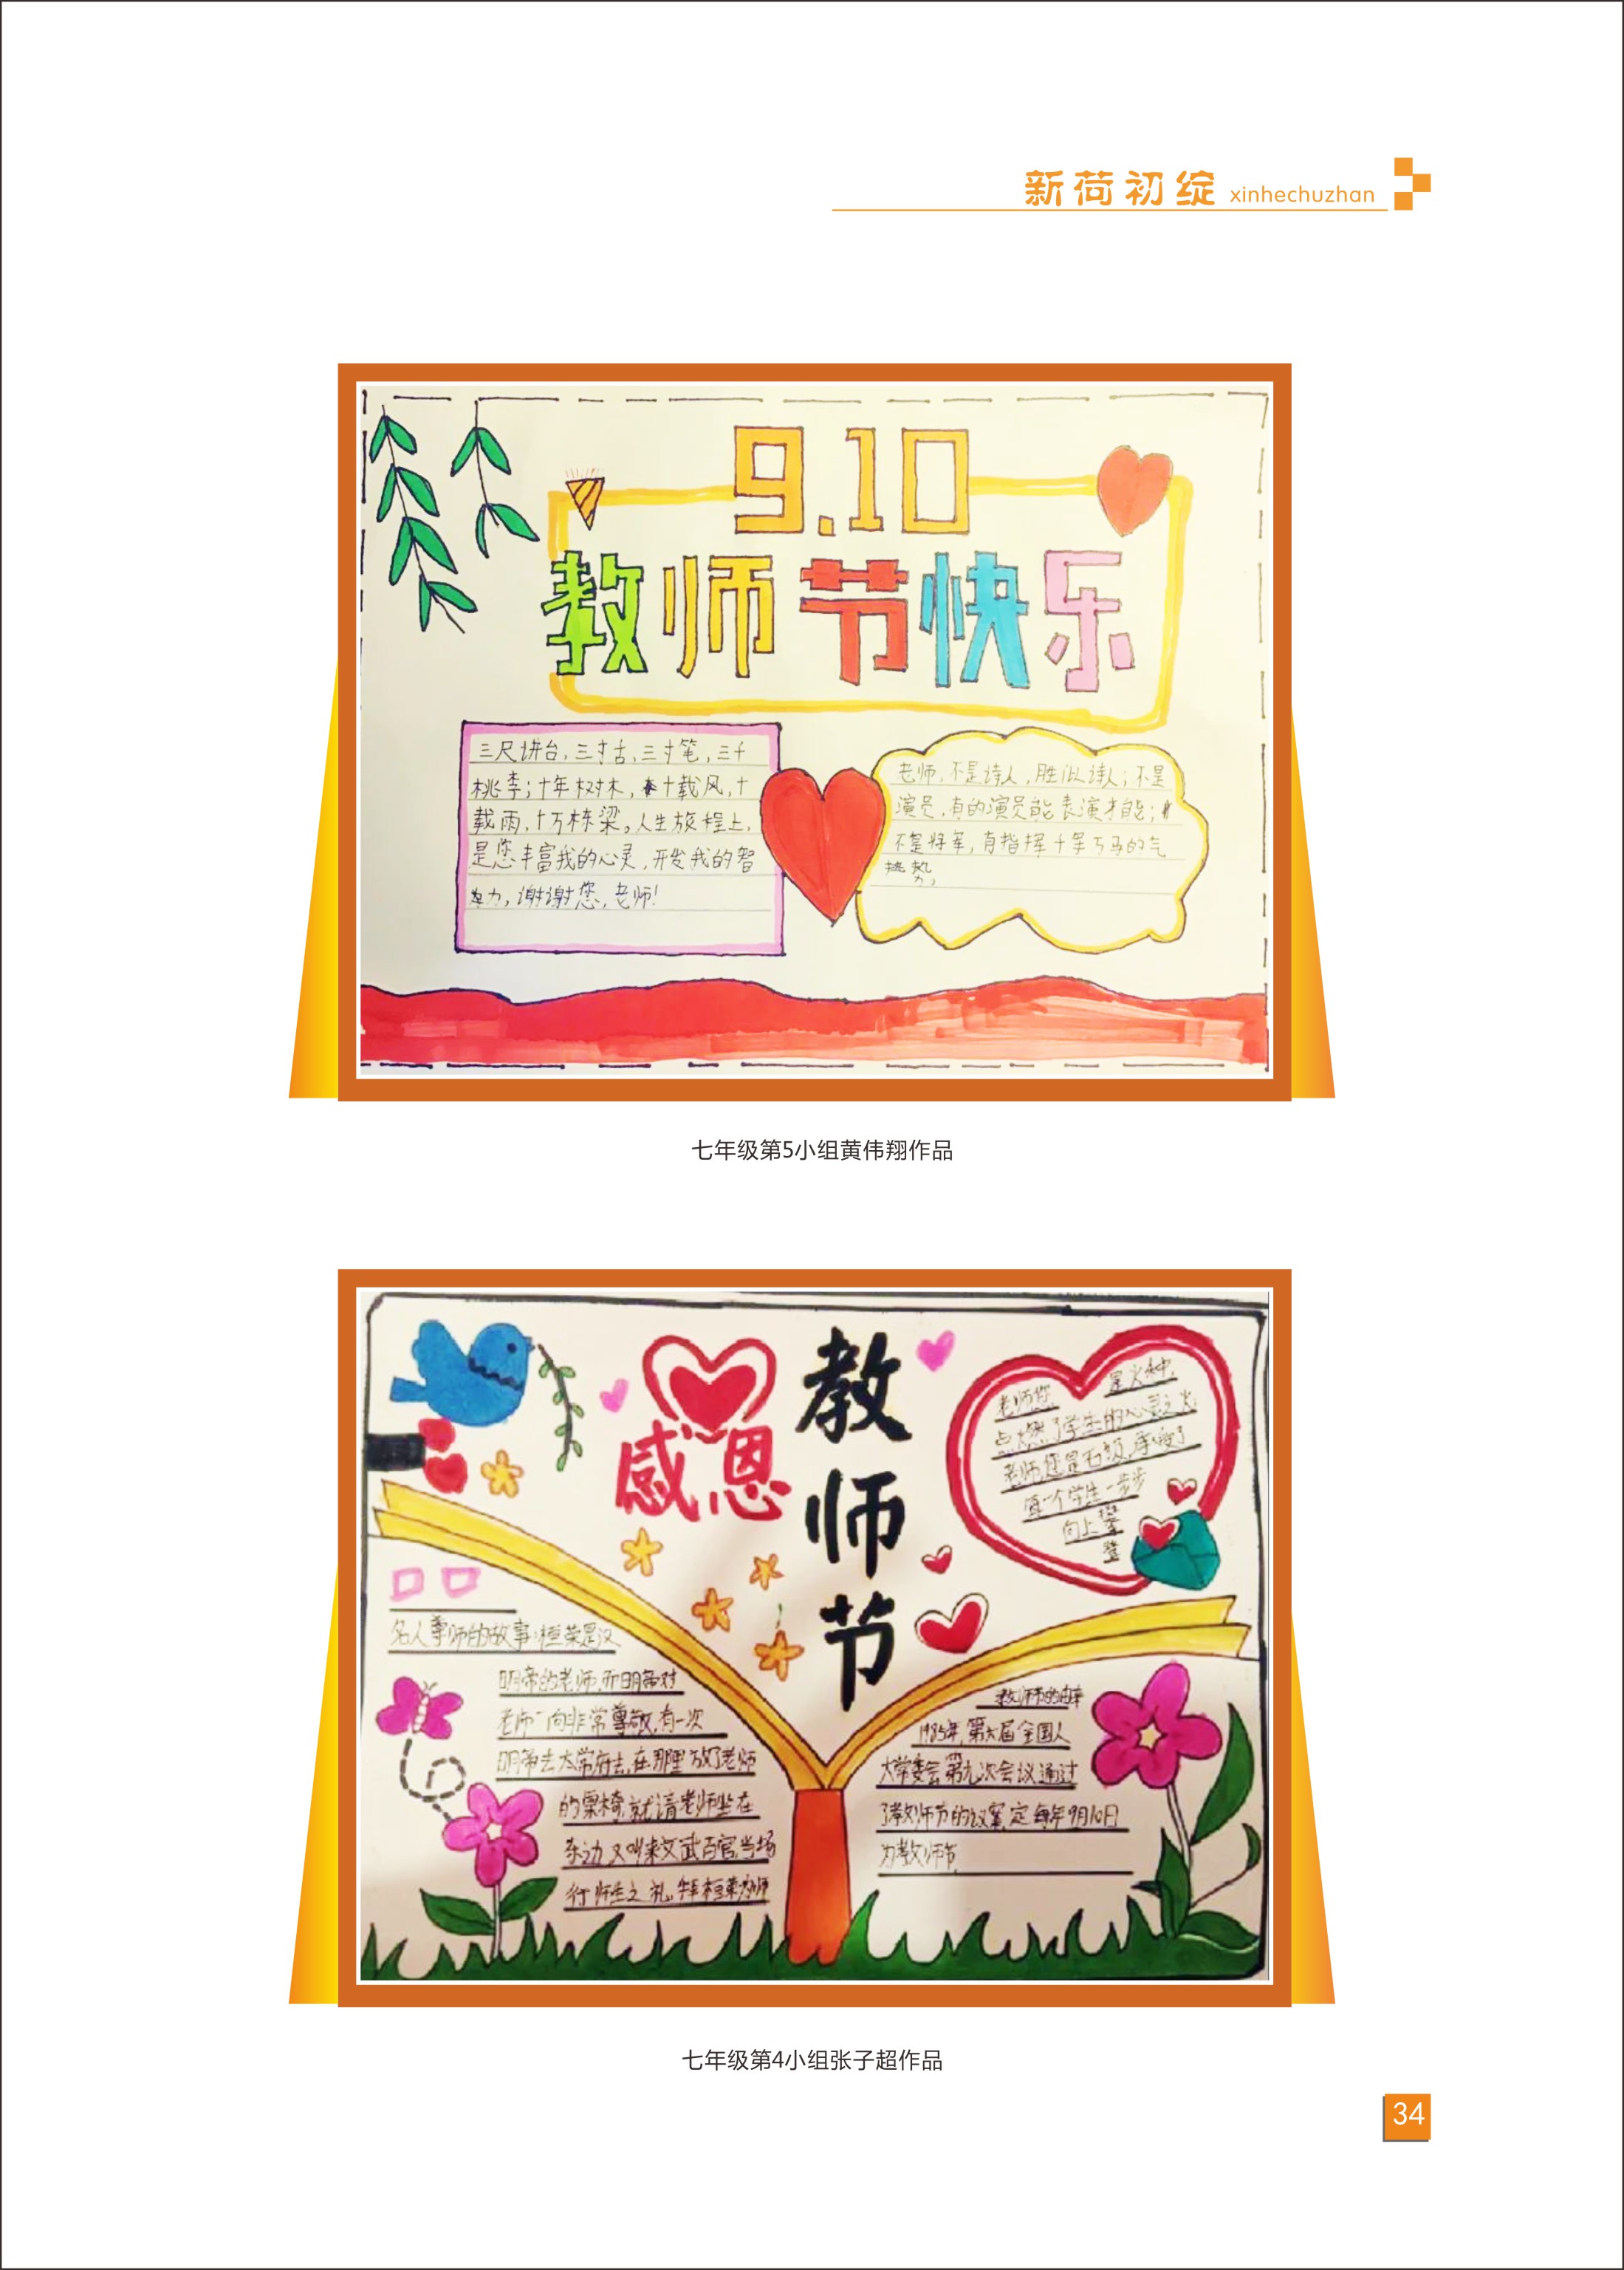 新荷初绽 xinhechuzhan
9.10
教师节快乐
三尺讲台,三寸舌,三寸笔,三千
桃李;十年树木,十载风,十
载雨,十万栋梁。人生旅程上,
是您丰富我的心灵,开发我的智
力,谢谢您,老师!
老师,不是诗人,胜似诗人;不是
演员,有的演员能表演才能;
不是将军,有指挥千军万马的气
势,
七年级第5小组黄伟翔作品
感恩
教师节
老师您 是火种,
点燃了学生的心灵之火
老师,您是石级,承受了
每一个学生一步步
向上攀
登
名人尊师的故事:桓荣是汉
明帝的老师,而明帝对
老师一向非常尊敬,有一次
明帝去太常府去,在那里放了老师
的桌椅,就请老师坐在
东边,又叫来文武百官,当场
行师生之礼,拜桓荣为师
教师节的由来
1985年,第六届全国人
大常委会第九次会议通过
了教师节的议案,定每年9月10日
为教师节
七年级第4小组张子超作品
34